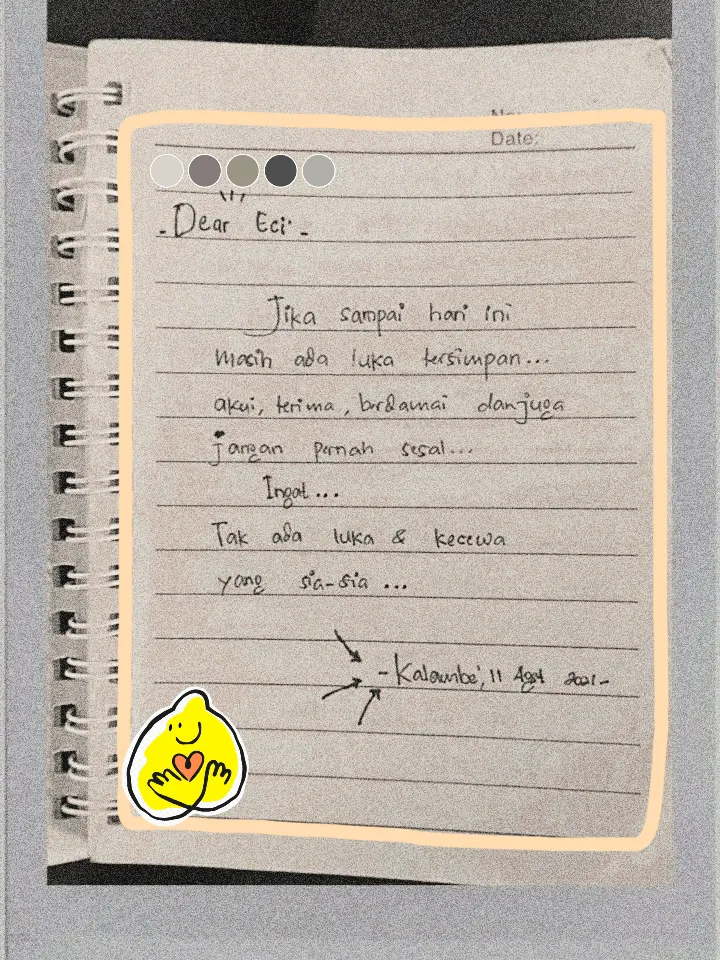 No:
Date:
- Dear Eci -
Jika sampai hari ini
masih ada luka tersimpan...
akui, terima, berdamai dan juga
jangan pernah sesal...
Ingat...
Tak ada luka & kecewa
yang sia-sia ...
- Kalambe', 11 Agst 2021 -